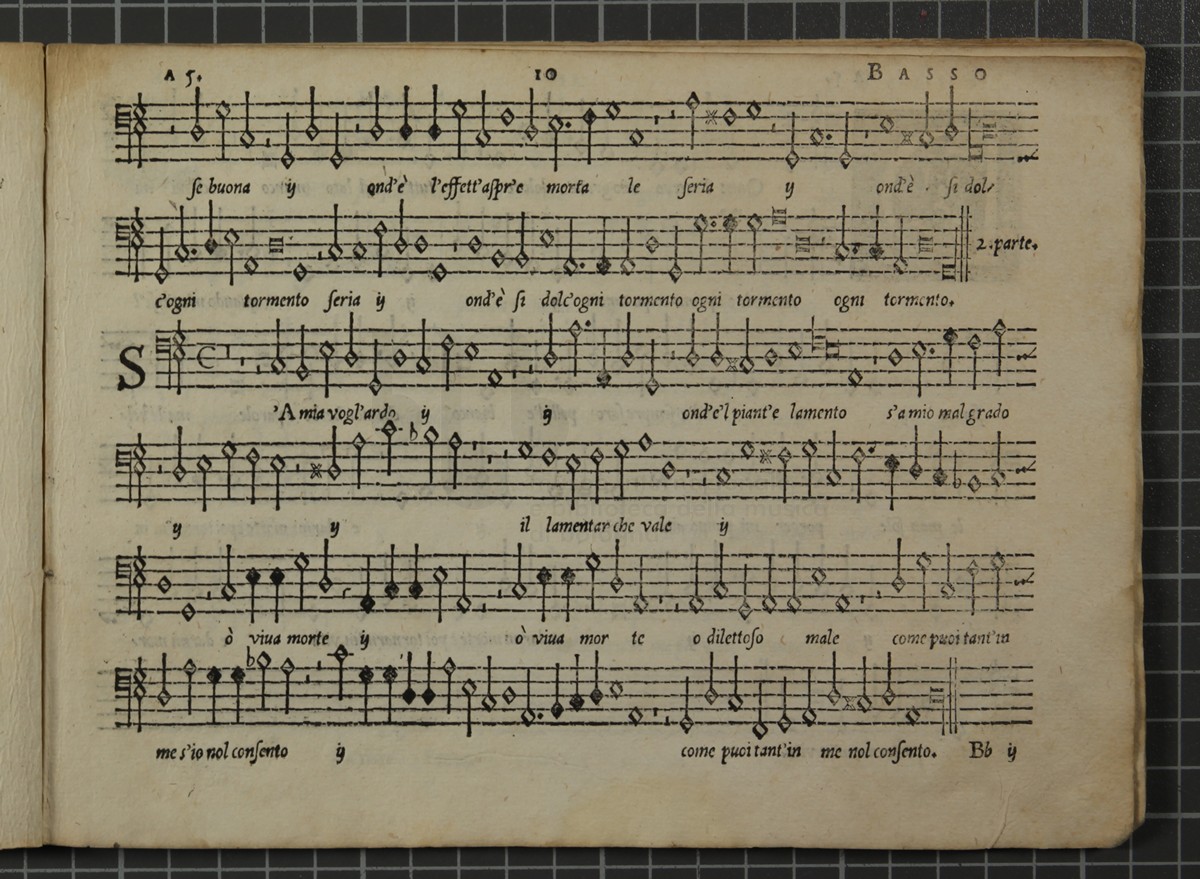 A 5. 10 BASSO
se buona ij ond'è l'effett'aspr'e morta le seria ij ond'è si dol
c'ogni tormento seria ij ij ond'è si dolc'ogni tormento ogni tormento ogni tormento. 2. parte.
S 'A mia vogl'ardo ij ij ond'e'l piant'e lamento s'a mio mal grado
ij ij il lamentar che vale ij
ò viua morte ij ò viua mor te o dilettoso male come puoi tant'in
me s'io nol consento ij come puoi tant'in me nol consento. Bb ij